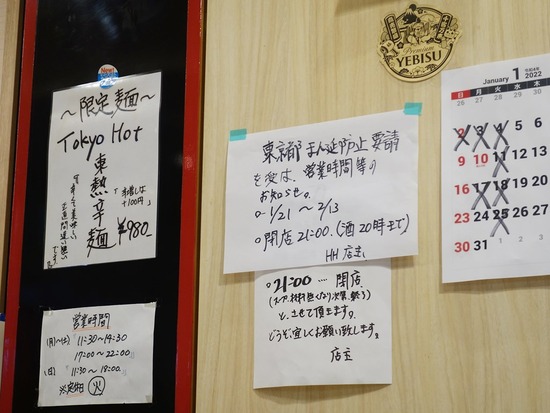 New
～限定麺～
Tokyo Hot
東熱辛麺
+100円」
¥980-
営業時間
(月)～(土) 11:30～14:30
17:00～22:00
(日) 11:30～18:00
※定休日 火
Premium
YEBISU
東京都 まん延防止要請
を受け、営業時間等の
お知らせ。
○1/21～2/13
○閉店21:00.(酒20時まで)
店主
○21:00…閉店
(スープ、材料無くなり次第、終了)
と、させて頂きます。
どうぞ、宜しくお願い致します。
店主
January 1 2022
日 月 火 水 木
26 27 28 29 30
2 3 4 5 6
9 10 11 12 13
16 17 18 19 20
23 24 25 26 27
30 31